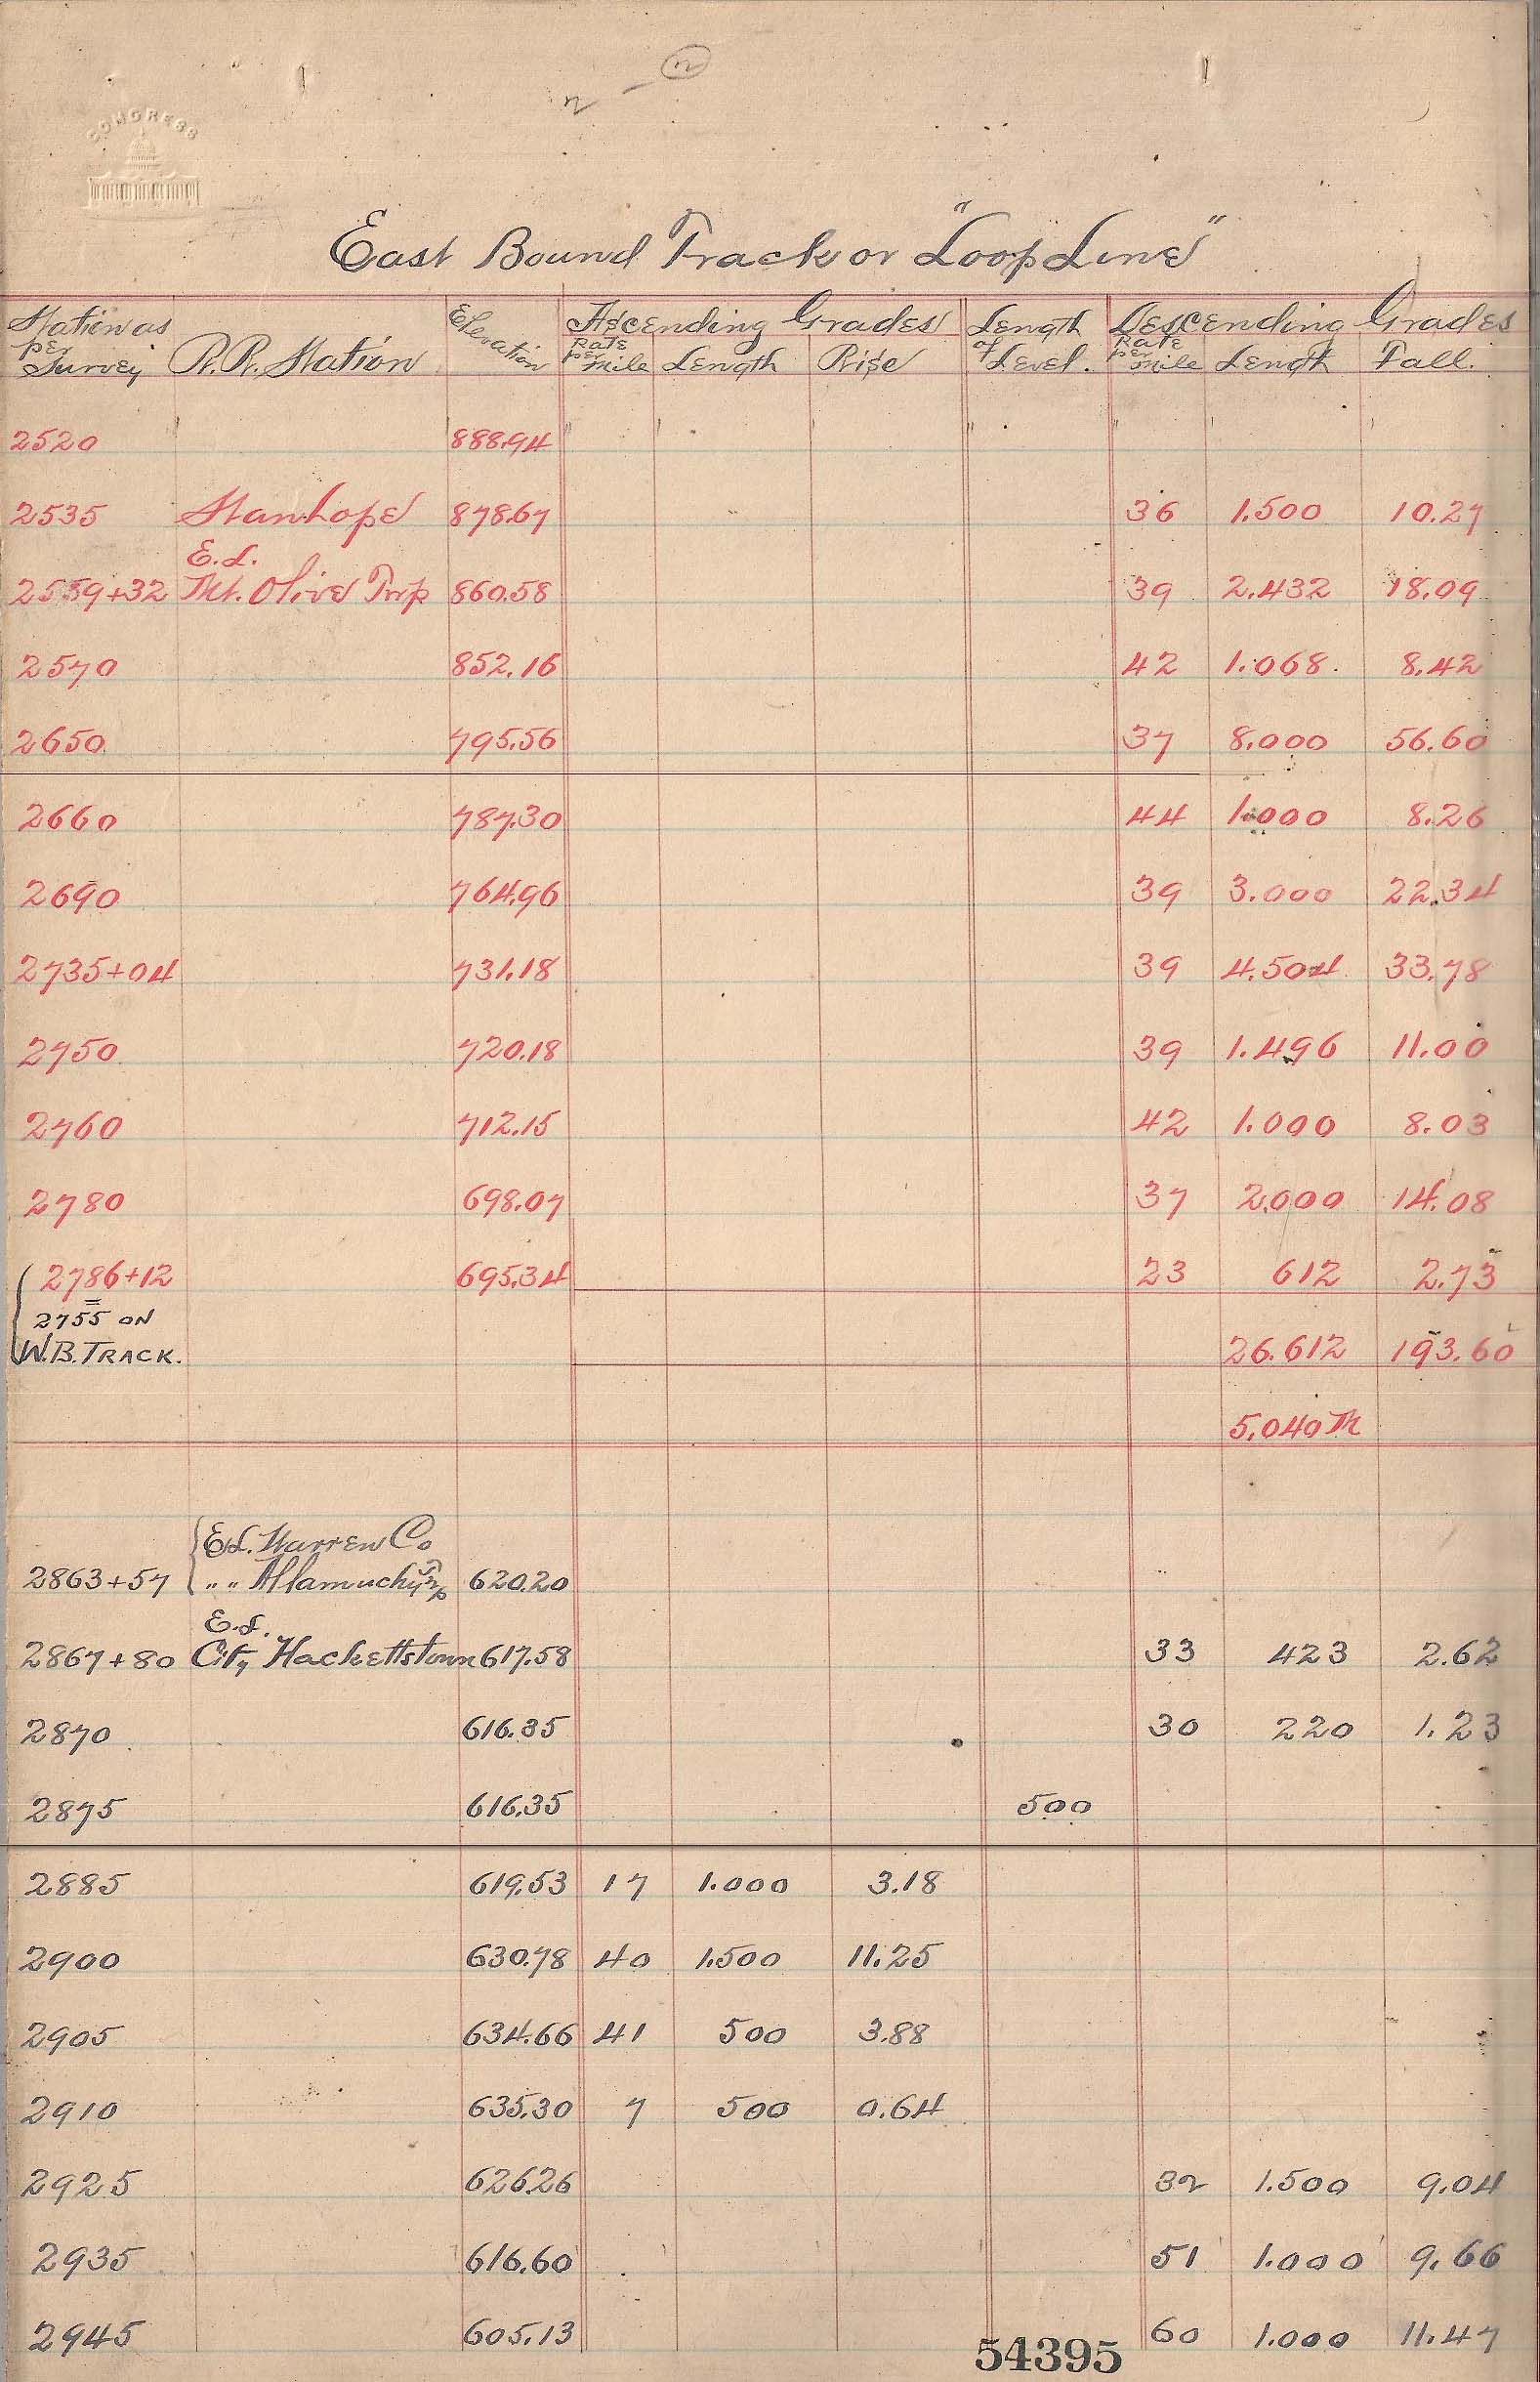 2 – 2
CONGRESS
East Bound Track or "Loop Line"
Station as per Survey R.R. Station Elevation Ascending Grades Length of Level. Descending Grades
Rate per mile Length Rise Rate per mile Length Fall.
2520 888.94
2535 Stanhope 878.67 36 1.500 10.27
E.L.
2559+32 Mt. Olive Twp 860.58 39 2.432 18.09
2570 852.16 42 1.068 8.42
2650 795.56 37 8.000 56.60
2660 787.30 44 1.000 8.26
2690 764.96 39 3.000 22.34
2735+04 731.18 39 4.504 33.78
2750 720.18 39 1.496 11.00
2760 712.15 42 1.000 8.03
2780 698.07 37 2.000 14.08
2786+12 695.34 23 612 2.73
=
2755 ON
W.B. TRACK. 26.612 193.60
5.040 M
E.L. Warren Co
2863+57 " " Allamuchy Twp 620.20
E.L.
2867+80 City Hackettstown 617.58 33 423 2.62
2870 616.35 30 220 1.23
2875 616.35 500
2885 619.53 17 1.000 3.18
2900 630.78 40 1.500 11.25
2905 634.66 41 500 3.88
2910 635.30 7 500 0.64
2925 626.26 32 1.500 9.04
2935 616.60 51 1.000 9.66
2945 605.13 60 1.000 11.47
54395